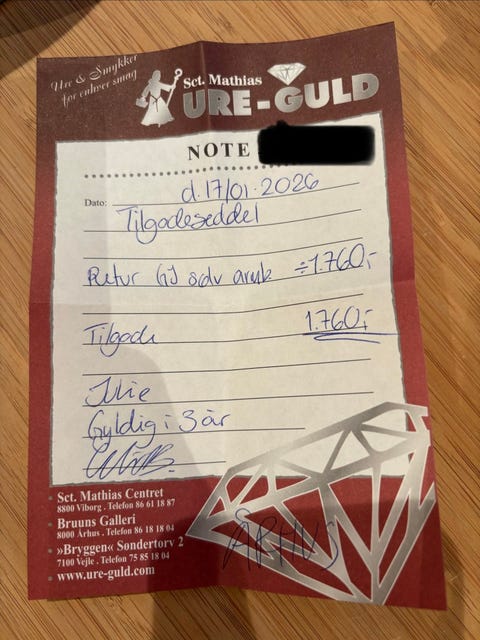 Ure & Smykker
for enhver smag
Sct. Mathias
URE-GULD
NOTE
Dato: d. 17/01-2026
Tilgodeseddel
Retur GJ sølv ÷1.760,-
Tilgode 1.760,-
Julie
Gyldig i 3 år
Sct. Mathias Centret
8800 Viborg . Telefon 86 61 18 87
Bruuns Galleri
8000 Århus . Telefon 86 18 18 04
»Bryggen« Søndertorv 2
7100 Vejle . Telefon 75 85 18 04
www.ure-guld.com
ÅRHUS